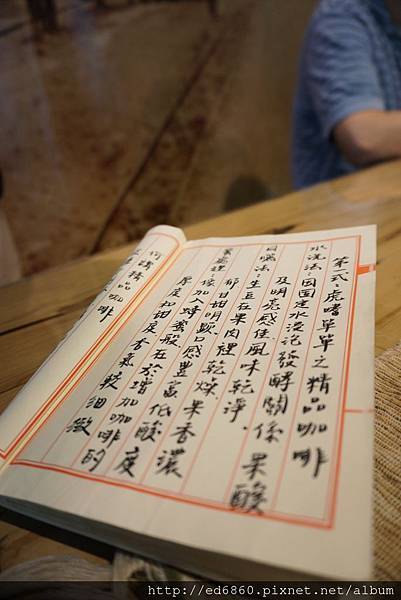 第一式：虎嗜單單之精品咖啡
水洗法：因固定水浸泡發酵關係果酸
及明亮感佳風味乾淨．
日曬法：生豆在果肉裡乾燥
郁日甘明顯口感豐富果香濃
蜜處理：像加入蜂蜜般在於增加咖啡的
厚度和甜度香氣較細緻
何謂精品咖啡
http://ed6860.pixnet.net/album